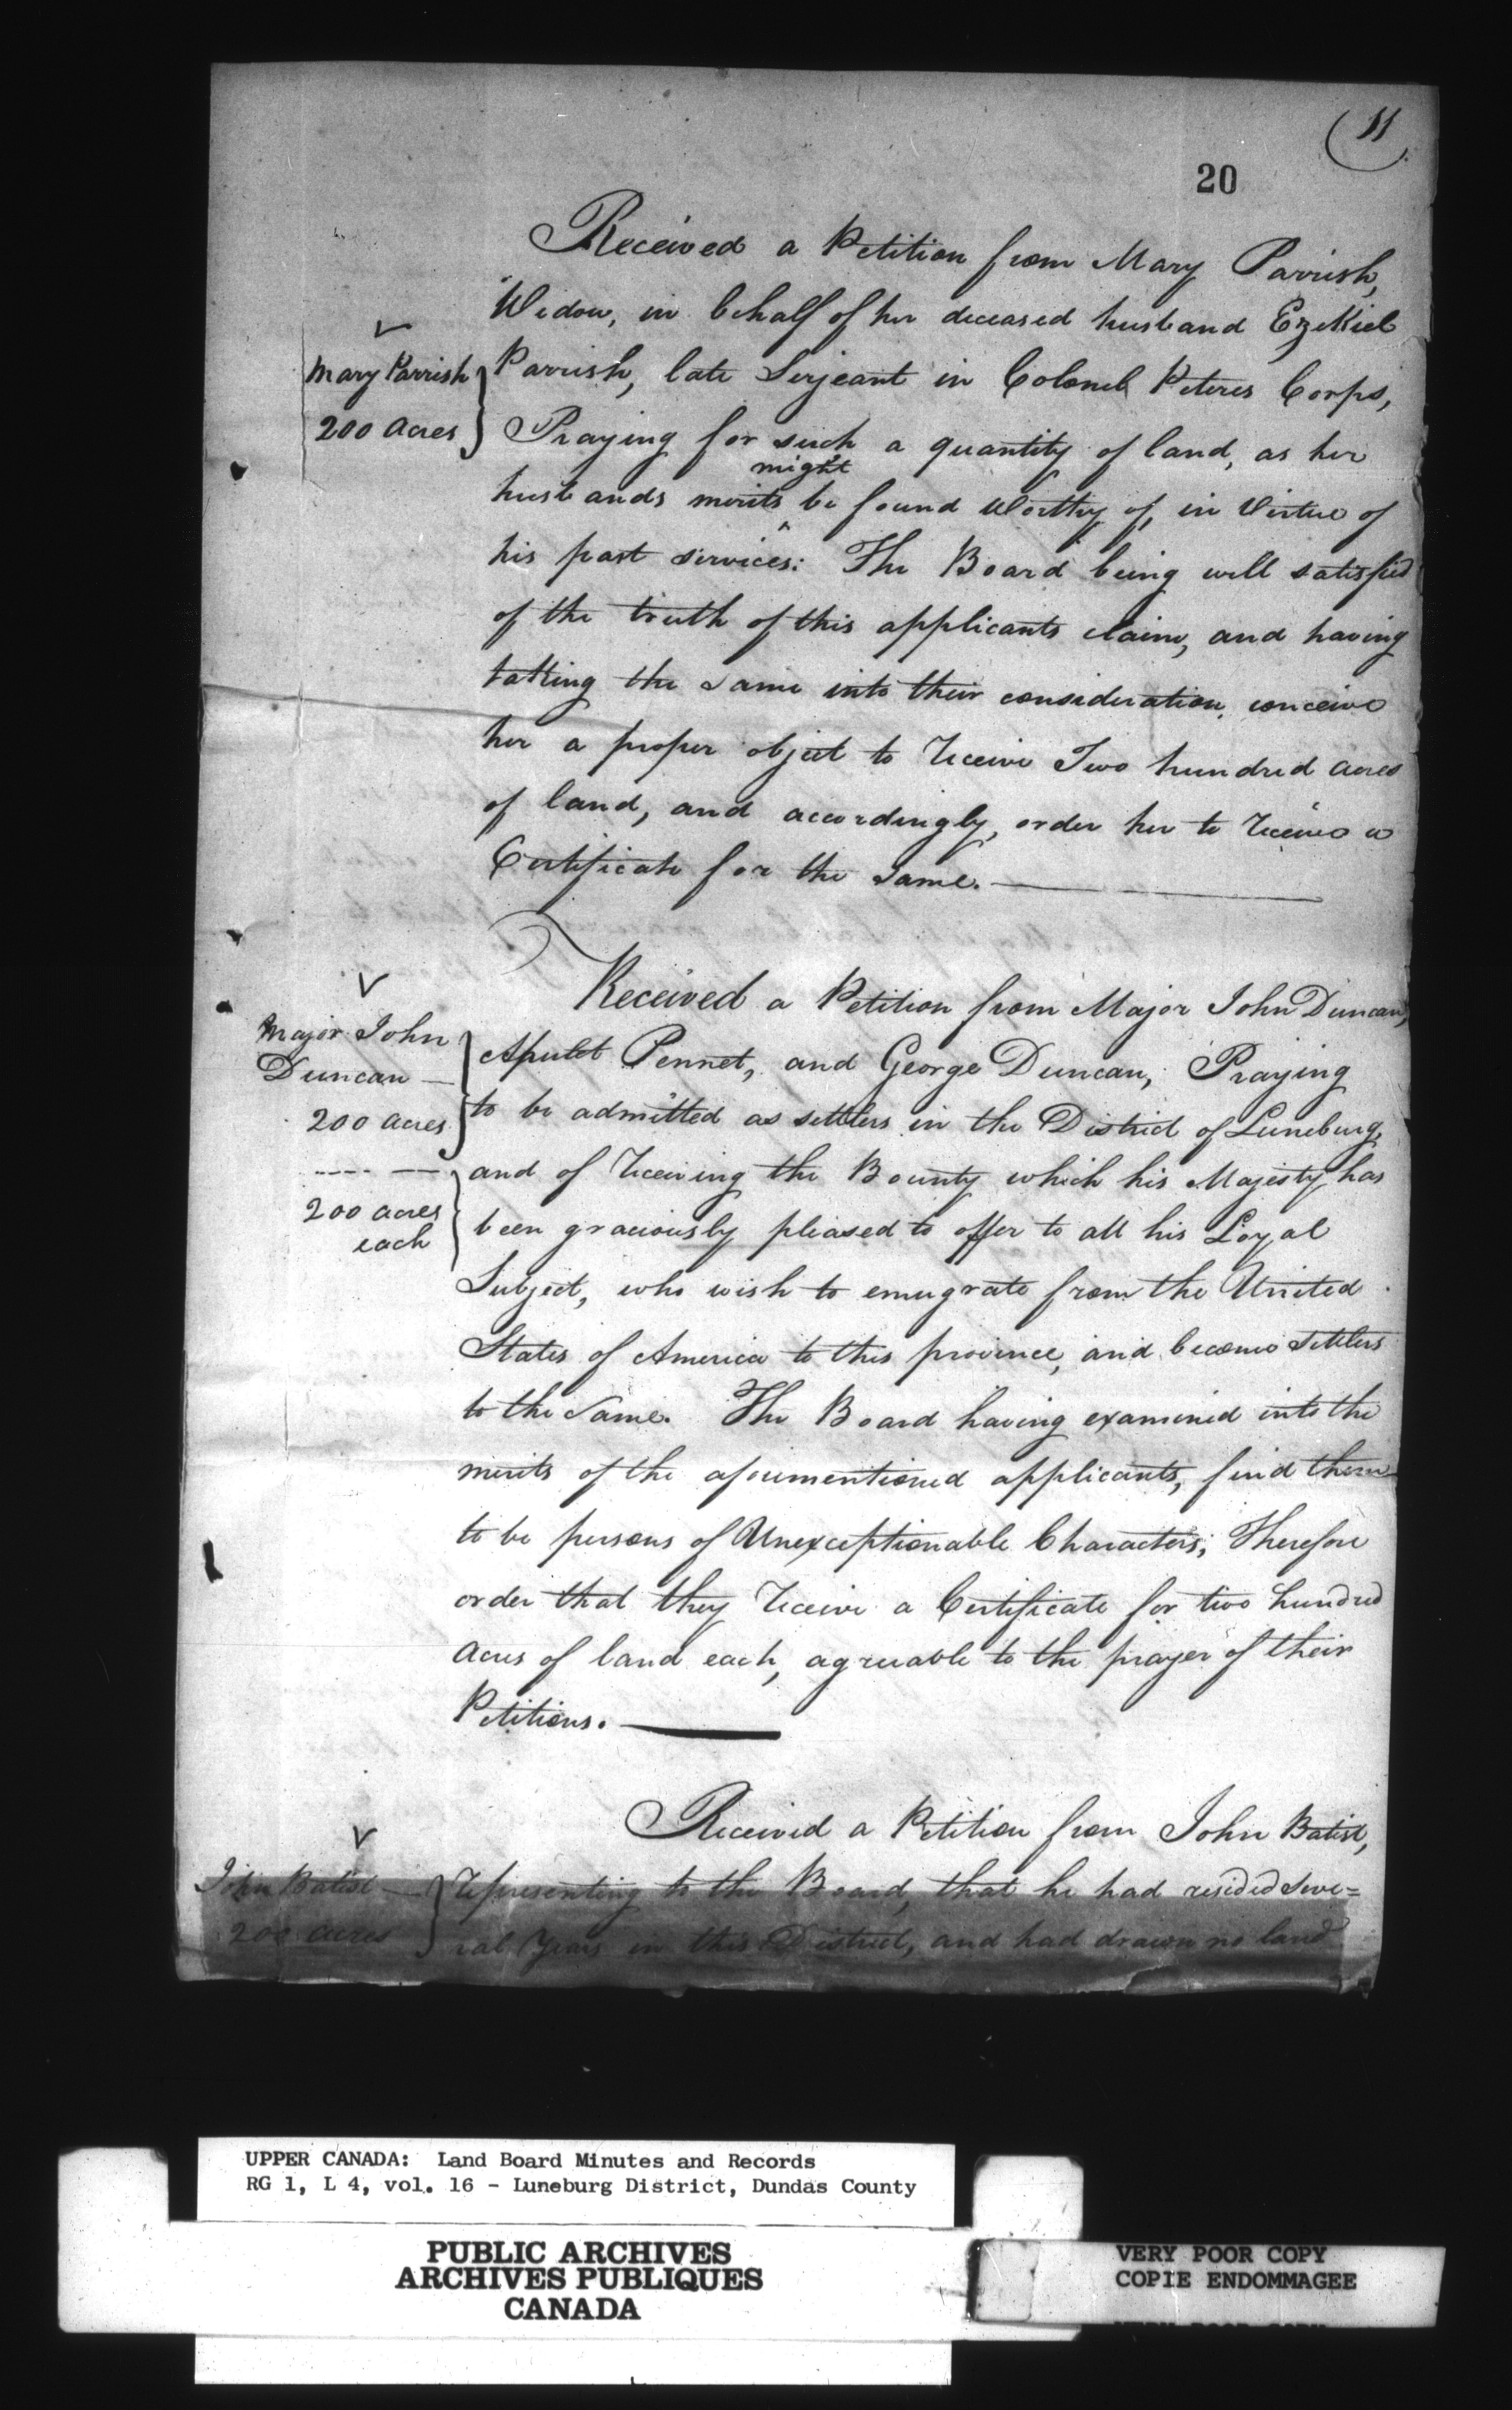 11
20
Received a Petition from Mary Parrish,
Widow, in behalf of her deceased husband Ezekiel
Mary Parrish
200 Acres
Parrish, late Serjeant in Colonel Peters Corps,
Praying for such a quantity of land, as her
husbands merits might be found Worthy of, in Virtue of
his past services: The Board being well satisfied
of the truth of this applicants claim, and having
taking the same into their consideration, conceive
her a proper object to receive Two hundred acres
of land, and accordingly, order her to receive a
Certificate for the same.
Received a Petition from Major John Duncan,
Major John
Duncan
200 acres
200 acres
each
Pennet, and George Duncan, Praying
to be admitted as settlers in the District of Luneburg,
and of receiving the Bounty which his Majesty has
been graciously pleased to offer to all his Loyal
Subject, who wish to emugrate from the United
States of America to this province, and become settlers
to the same. The Board having examined into the
merits of the aforementioned applicants, find them
to be persons of Unexceptionable Characters; Therefore
order that they receive a Certificate for two hundred
acres of land each, agreeable to the prayer of their
Petitions.
Received a Petition from John Batist,
John Batist
200 acres
representing to the Board, that he had resided seve=
ral Years in this District, and had drawn no land
UPPER CANADA: Land Board Minutes and Records
RG 1, L 4, vol. 16 - Luneburg District, Dundas County
PUBLIC ARCHIVES
ARCHIVES PUBLIQUES
CANADA
VERY POOR COPY
COPIE ENDOMMAGEE